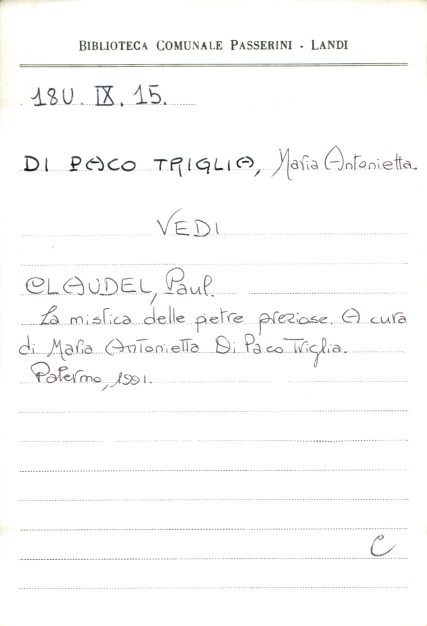 BIBLIOTECA COMUNALE PASSERINI - LANDI
18U. IX. 15.
DI PACO TRIGLIA, Maria Antonietta.
VEDI
CLAUDEL, Paul.
La mistica delle pietre preziose. A cura
di Maria Antonietta Di Paco Triglia.
Palermo, 1991.
C